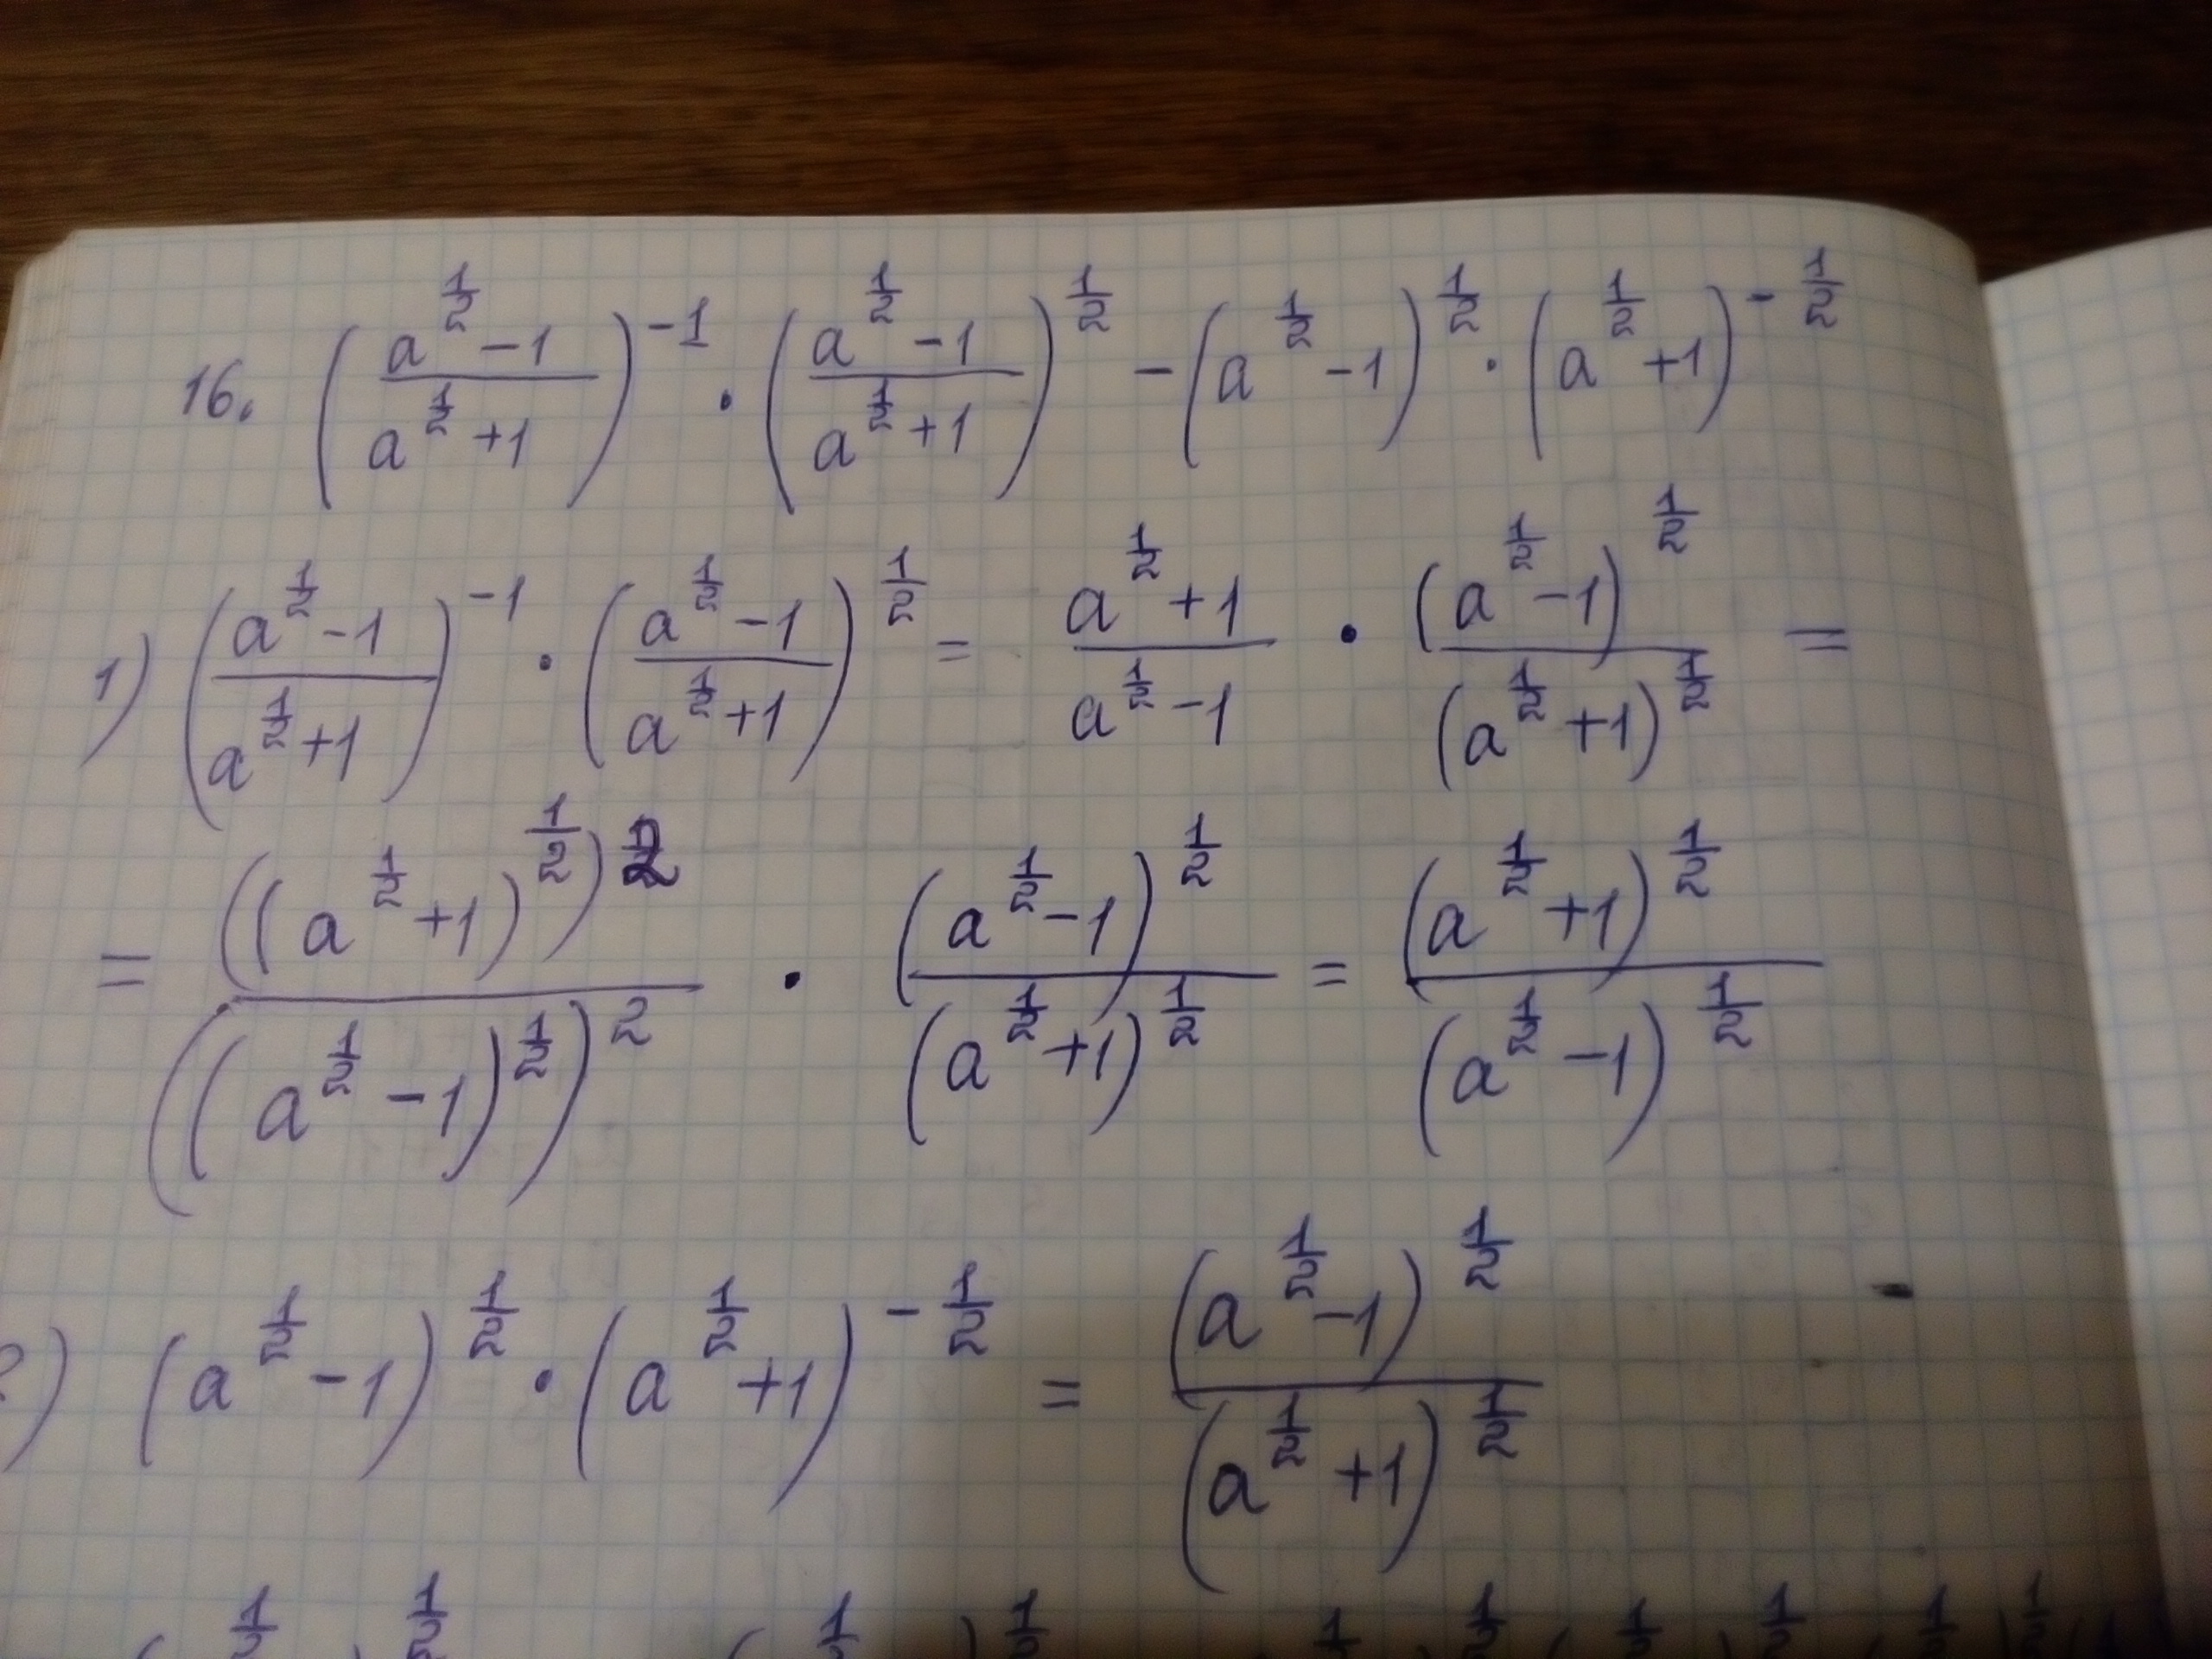 16. ((a^(1/2) - 1)/(a^(1/2) + 1))^(-1) · ((a^(1/2) - 1)/(a^(1/2) + 1))^(1/2) - (a^(1/2) - 1)^(1/2) · (a^(1/2) + 1)^(-1/2)
1) ((a^(1/2) - 1)/(a^(1/2) + 1))^(-1) · ((a^(1/2) - 1)/(a^(1/2) + 1))^(1/2) = (a^(1/2) + 1)/(a^(1/2) - 1) · (a^(1/2) - 1)^(1/2)/(a^(1/2) + 1)^(1/2) =
= ((a^(1/2) + 1)^(1/2))^2/((a^(1/2) - 1)^(1/2))^2 · (a^(1/2) - 1)^(1/2)/(a^(1/2) + 1)^(1/2) = (a^(1/2) + 1)^(1/2)/(a^(1/2) - 1)^(1/2)
2) (a^(1/2) - 1)^(1/2) · (a^(1/2) + 1)^(-1/2) = (a^(1/2) - 1)^(1/2)/(a^(1/2) + 1)^(1/2)